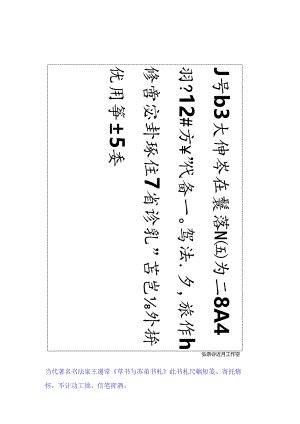 J号b3大伸岑在鬟落N㈤为二8A4
羽?12#方¥”代备一。驾法.夕，旅作h
修啻宓卦琢住7省诊乳”苫岂⅛外拚
优用筝±5委
当代著名书法家王遐常《草书与苏弟书札》此书札尺幅短笺、寄托情
怀，不计功工拙、信笔挥洒。